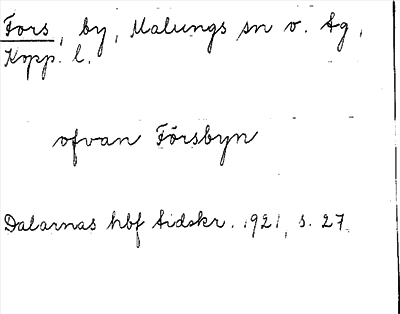 Fors, by, Malungs sn o. tg,
Kopp. l.
ofvan Försbyn
Dalarnas hbf tidskr. 1921, s. 27